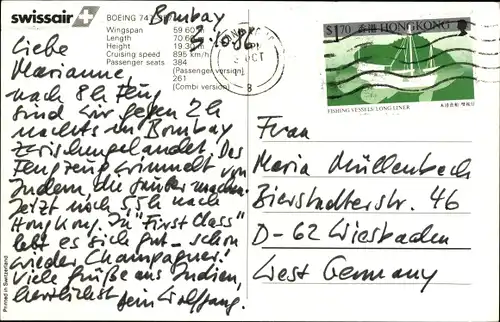 swissair
BOEING 747
Wingspan 59.60 m
Length 70.60
Height 19.30 m
Cruising speed 895 km/h
Passenger seats 384
(Passenger version)
261
(Combi version)
Bombay
5.10.86
Liebe
Marianne,
nach 8h Flug
sind wir gegen 2h
nachts in Bombay
zwischengelandet. Das
Flugzeug wimmelt von
Indern, die sauber machen.
Jetzt noch 5.5h nach
Hong Kong. In "First Class"
lebt es sich gut - schon
wieder Champagner!
Viele Grüße aus Indien,
herzlichst Dein Wolfgang.
Printed in Switzerland
OCT
8
$1.70 香港 HONG KONG
FISHING VESSELS/LONG LINER
Frau
Maria Müllenbach
Bierstadterstr. 46
D-62 Wiesbaden
West Germany